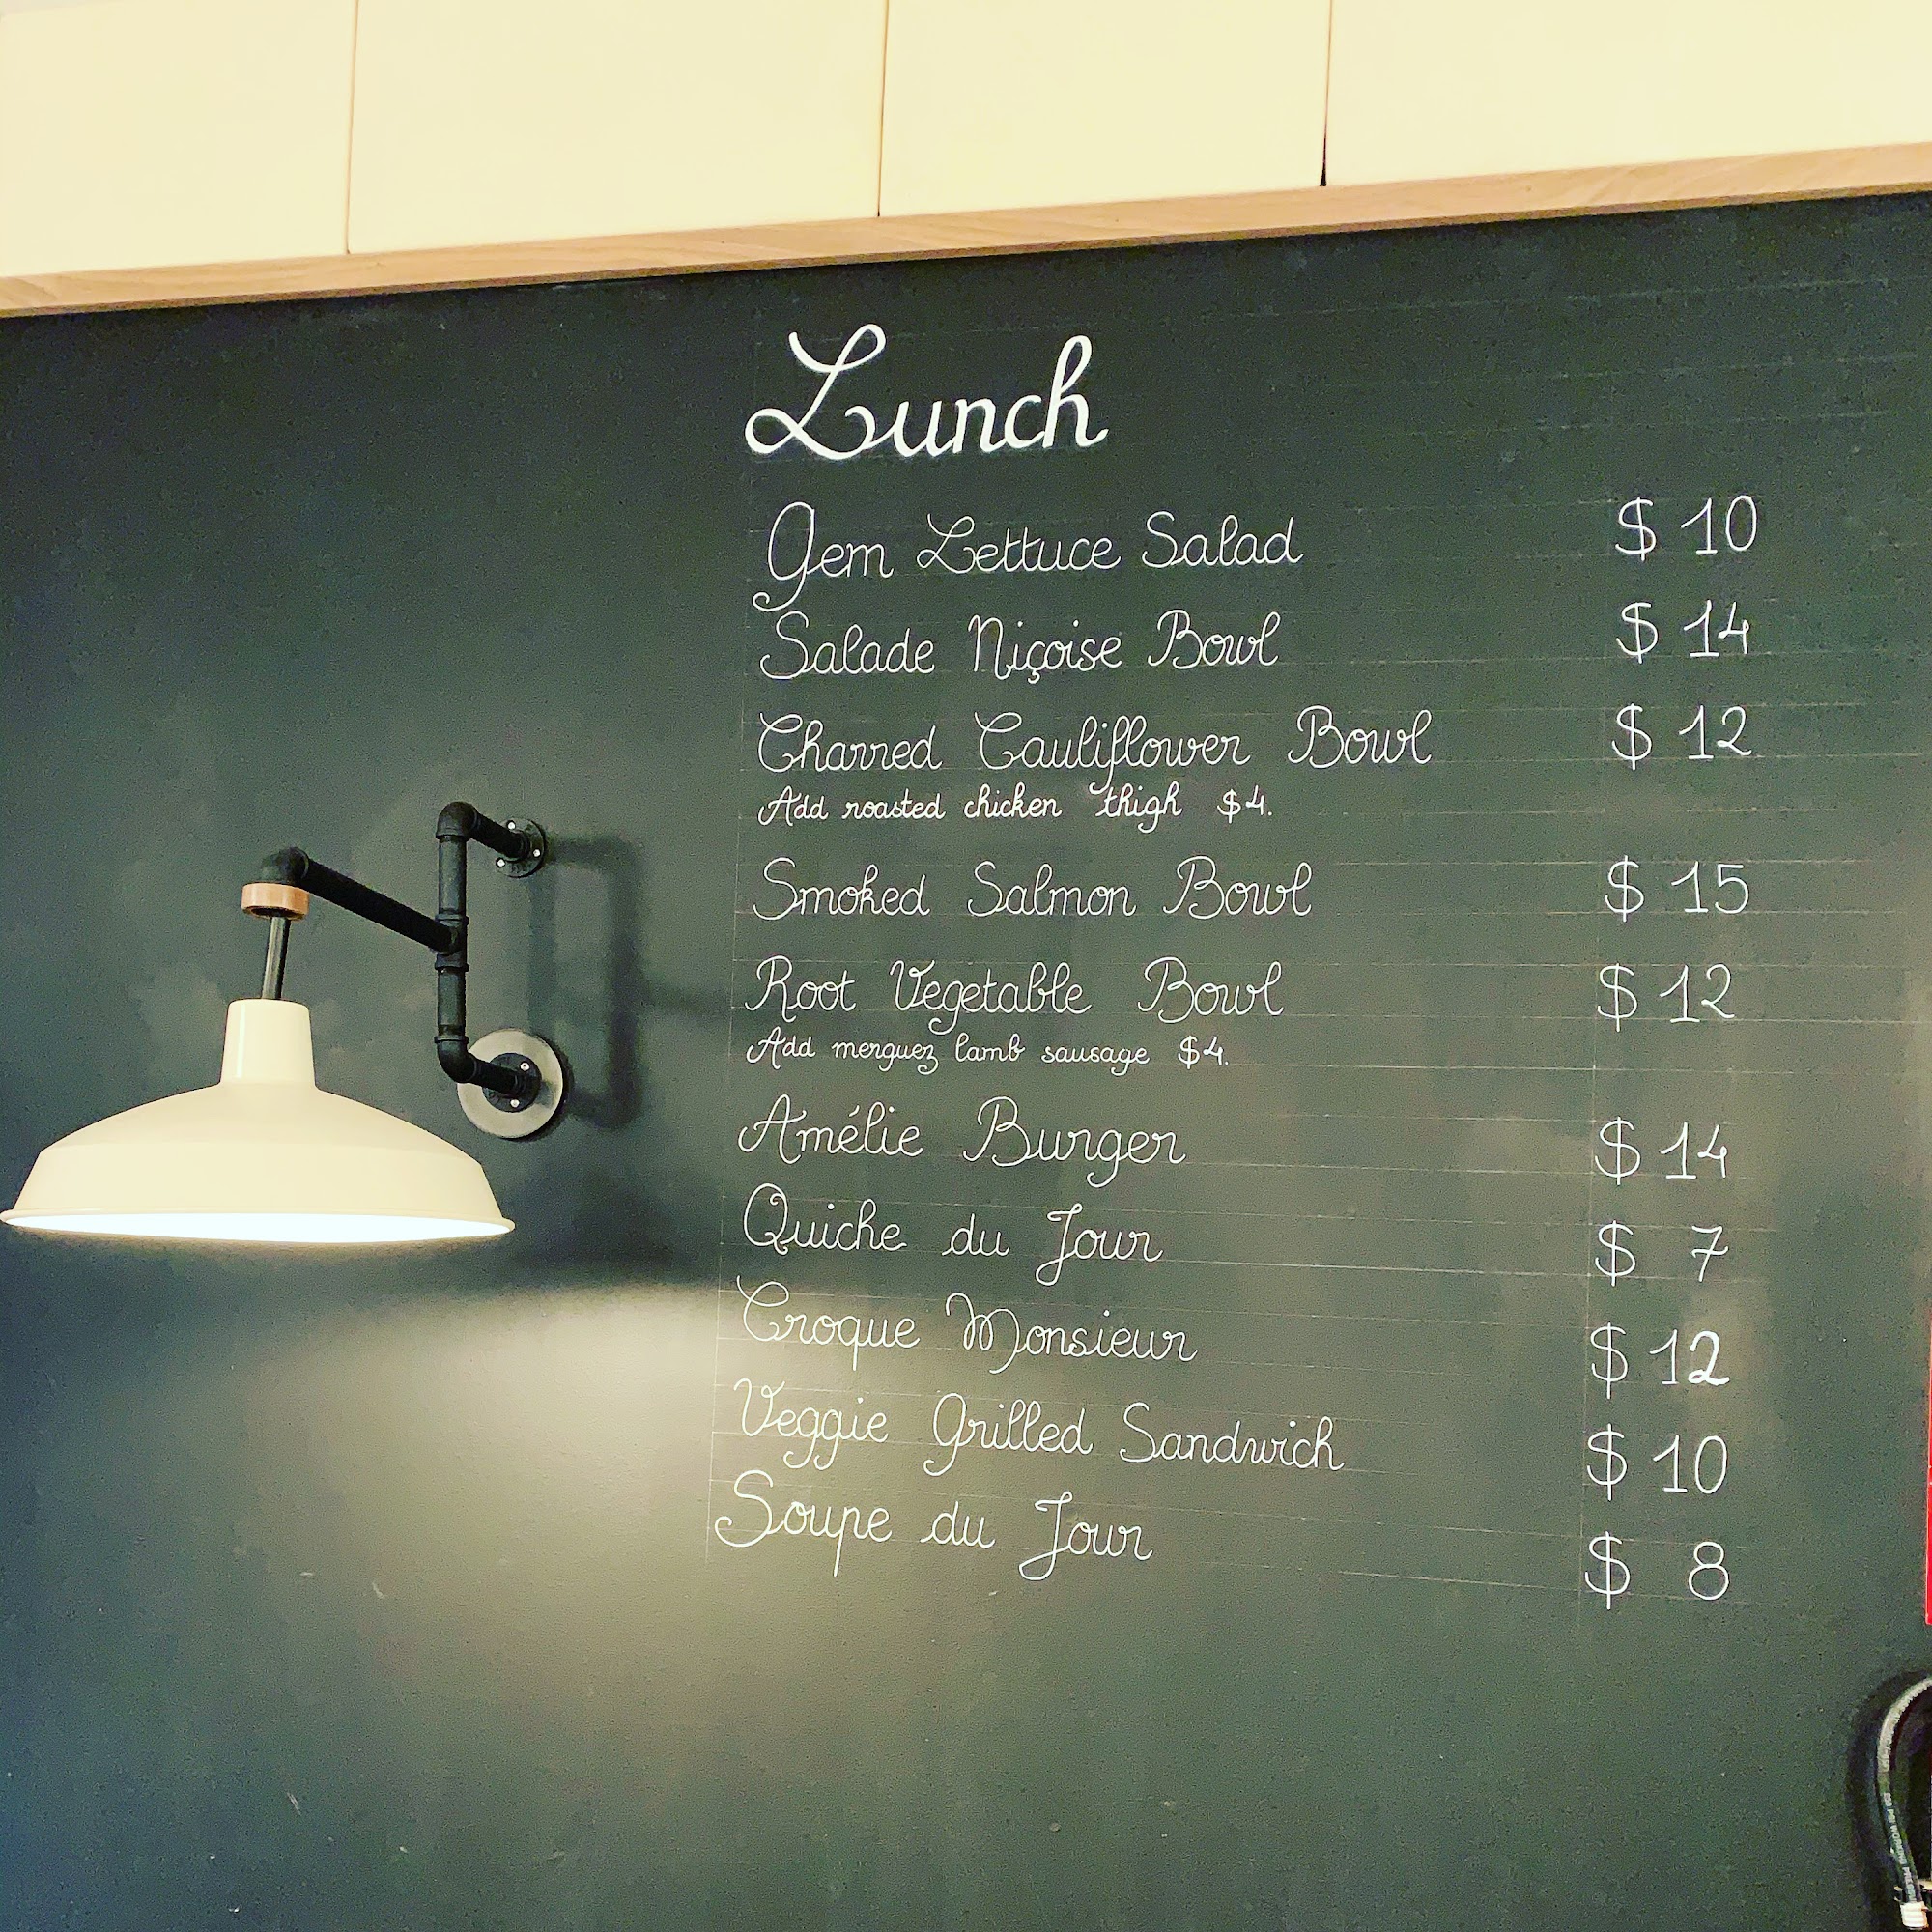 Lunch
Gem Lettuce Salad $ 10
Salade Niçoise Bowl $ 14
Charred Cauliflower Bowl $ 12
Add roasted chicken thigh $4.
Smoked Salmon Bowl $ 15
Root Vegetable Bowl $ 12
Add merguez lamb sausage $4.
Amélie Burger $ 14
Quiche du Jour $ 7
Croque Monsieur $ 12
Veggie Grilled Sandwich $ 10
Soupe du Jour $ 8